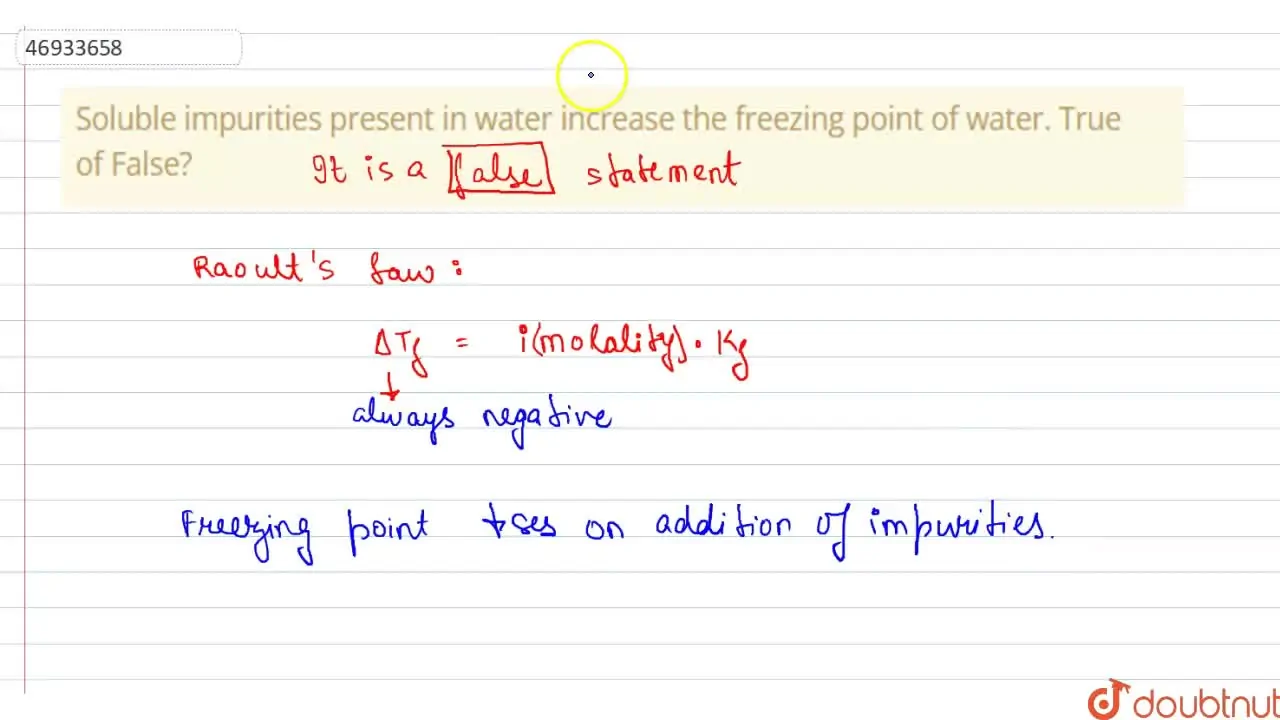 46933658
Soluble impurities present in water increase the freezing point of water. True
of False?
It is a false statement
Raoult's Law :
ΔTf = i(molality). Kf
↓
always negative
Freezing point ↓ses on addition of impurities.
doubtnut